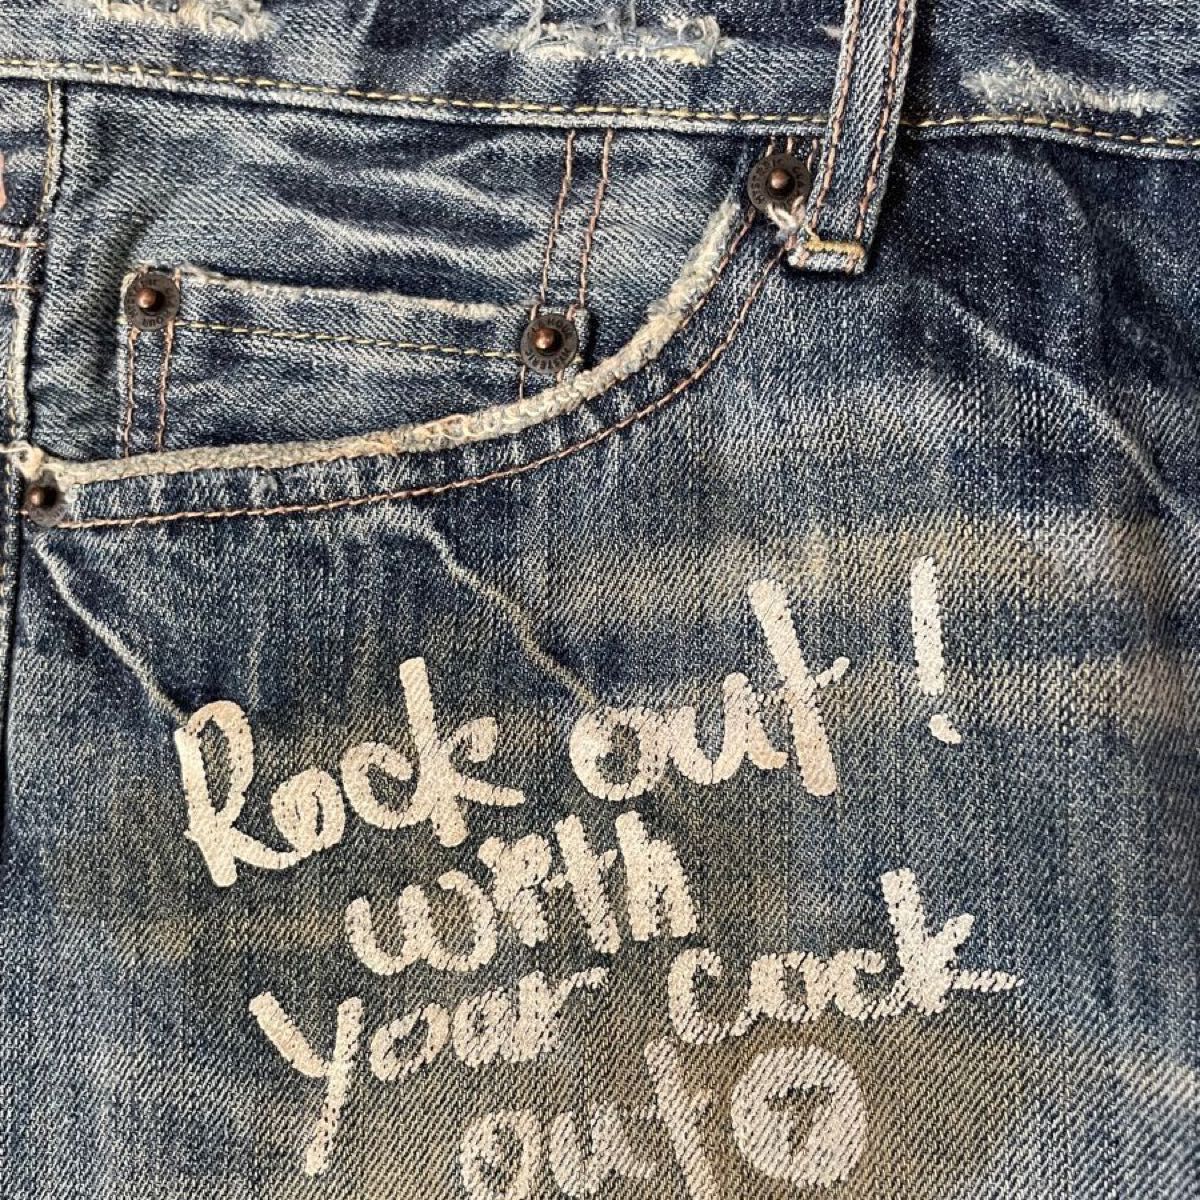 Rock out!
with
your cock
out 7